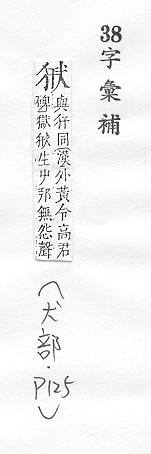 38字彙補
與犴同漢外黃令高君
碑獄犾生屮邦無怨聲
(犬部.P125)